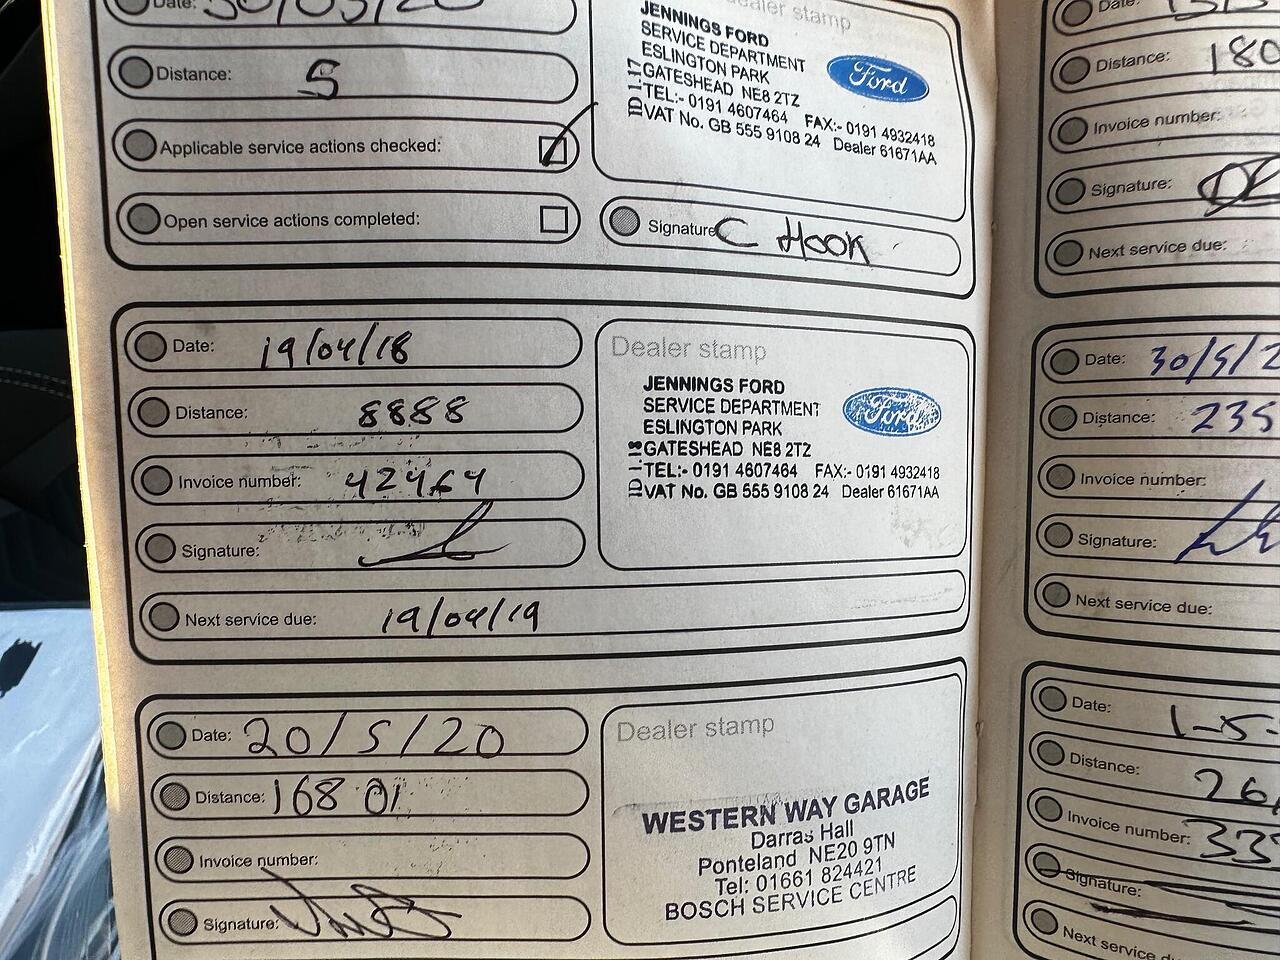 Date:
Distance: 5
Applicable service actions checked:
Open service actions completed:
Dealer stamp
JENNINGS FORD
SERVICE DEPARTMENT
ESLINGTON PARK
GATESHEAD NE8 2TZ
TEL:- 0191 4607464 FAX:- 0191 4932418
VAT No. GB 555 9108 24 Dealer 61671AA
ID 1-17
Ford
Signature C HOOK
Date: 19/04/18
Distance: 8888
Invoice number: 42464
Signature:
Next service due: 19/04/19
Dealer stamp
JENNINGS FORD
SERVICE DEPARTMENT
ESLINGTON PARK
GATESHEAD NE8 2TZ
TEL:- 0191 4607464 FAX:- 0191 4932418
VAT No. GB 555 9108 24 Dealer 61671AA
Ford
Date: 20/5/20
Distance: 16801
Invoice number:
Signature:
Dealer stamp
WESTERN WAY GARAGE
Darras Hall
Ponteland NE20 9TN
Tel: 01661 824421
BOSCH SERVICE CENTRE
Date:
Distance: 180
Invoice number:
Signature:
Next service due:
Date: 30/5/2
Distance: 235
Invoice number:
Signature:
Next service due:
Date: 1-5-
Distance: 26
Invoice number: 33
Signature:
Next service due: